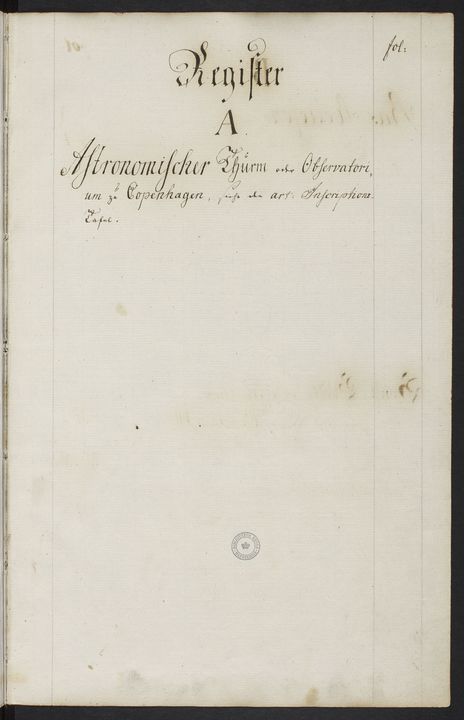 fol:
Register
A.
Astronomischer Thürm oder Observatori,
um zu Copenhagen, siehe den art: Inscriptions
Tafel.